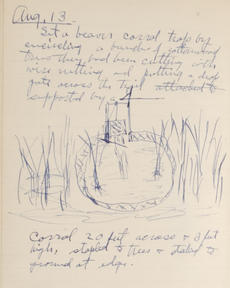 Aug. 13
Set a beaver corral trap by
encircling a bunch of cottonwood
trees they had been cutting with
wire netting and putting a drop
gate across the trail attached to
supported by a
Corral 20 feet across & 3 feet
high, stapled to trees & staked to
ground at edge.